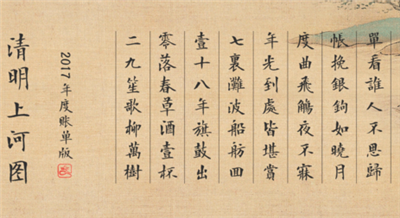 單看誰人不思歸
帳挽銀鉤如曉月
度曲飛觴夜不寐
年光到處皆堪賞
七裏灘波船舫回
壹十八年旗鼓出
零落春草酒壹杯
二九笙歌柳萬樹
2017年度账单版
清明上河图